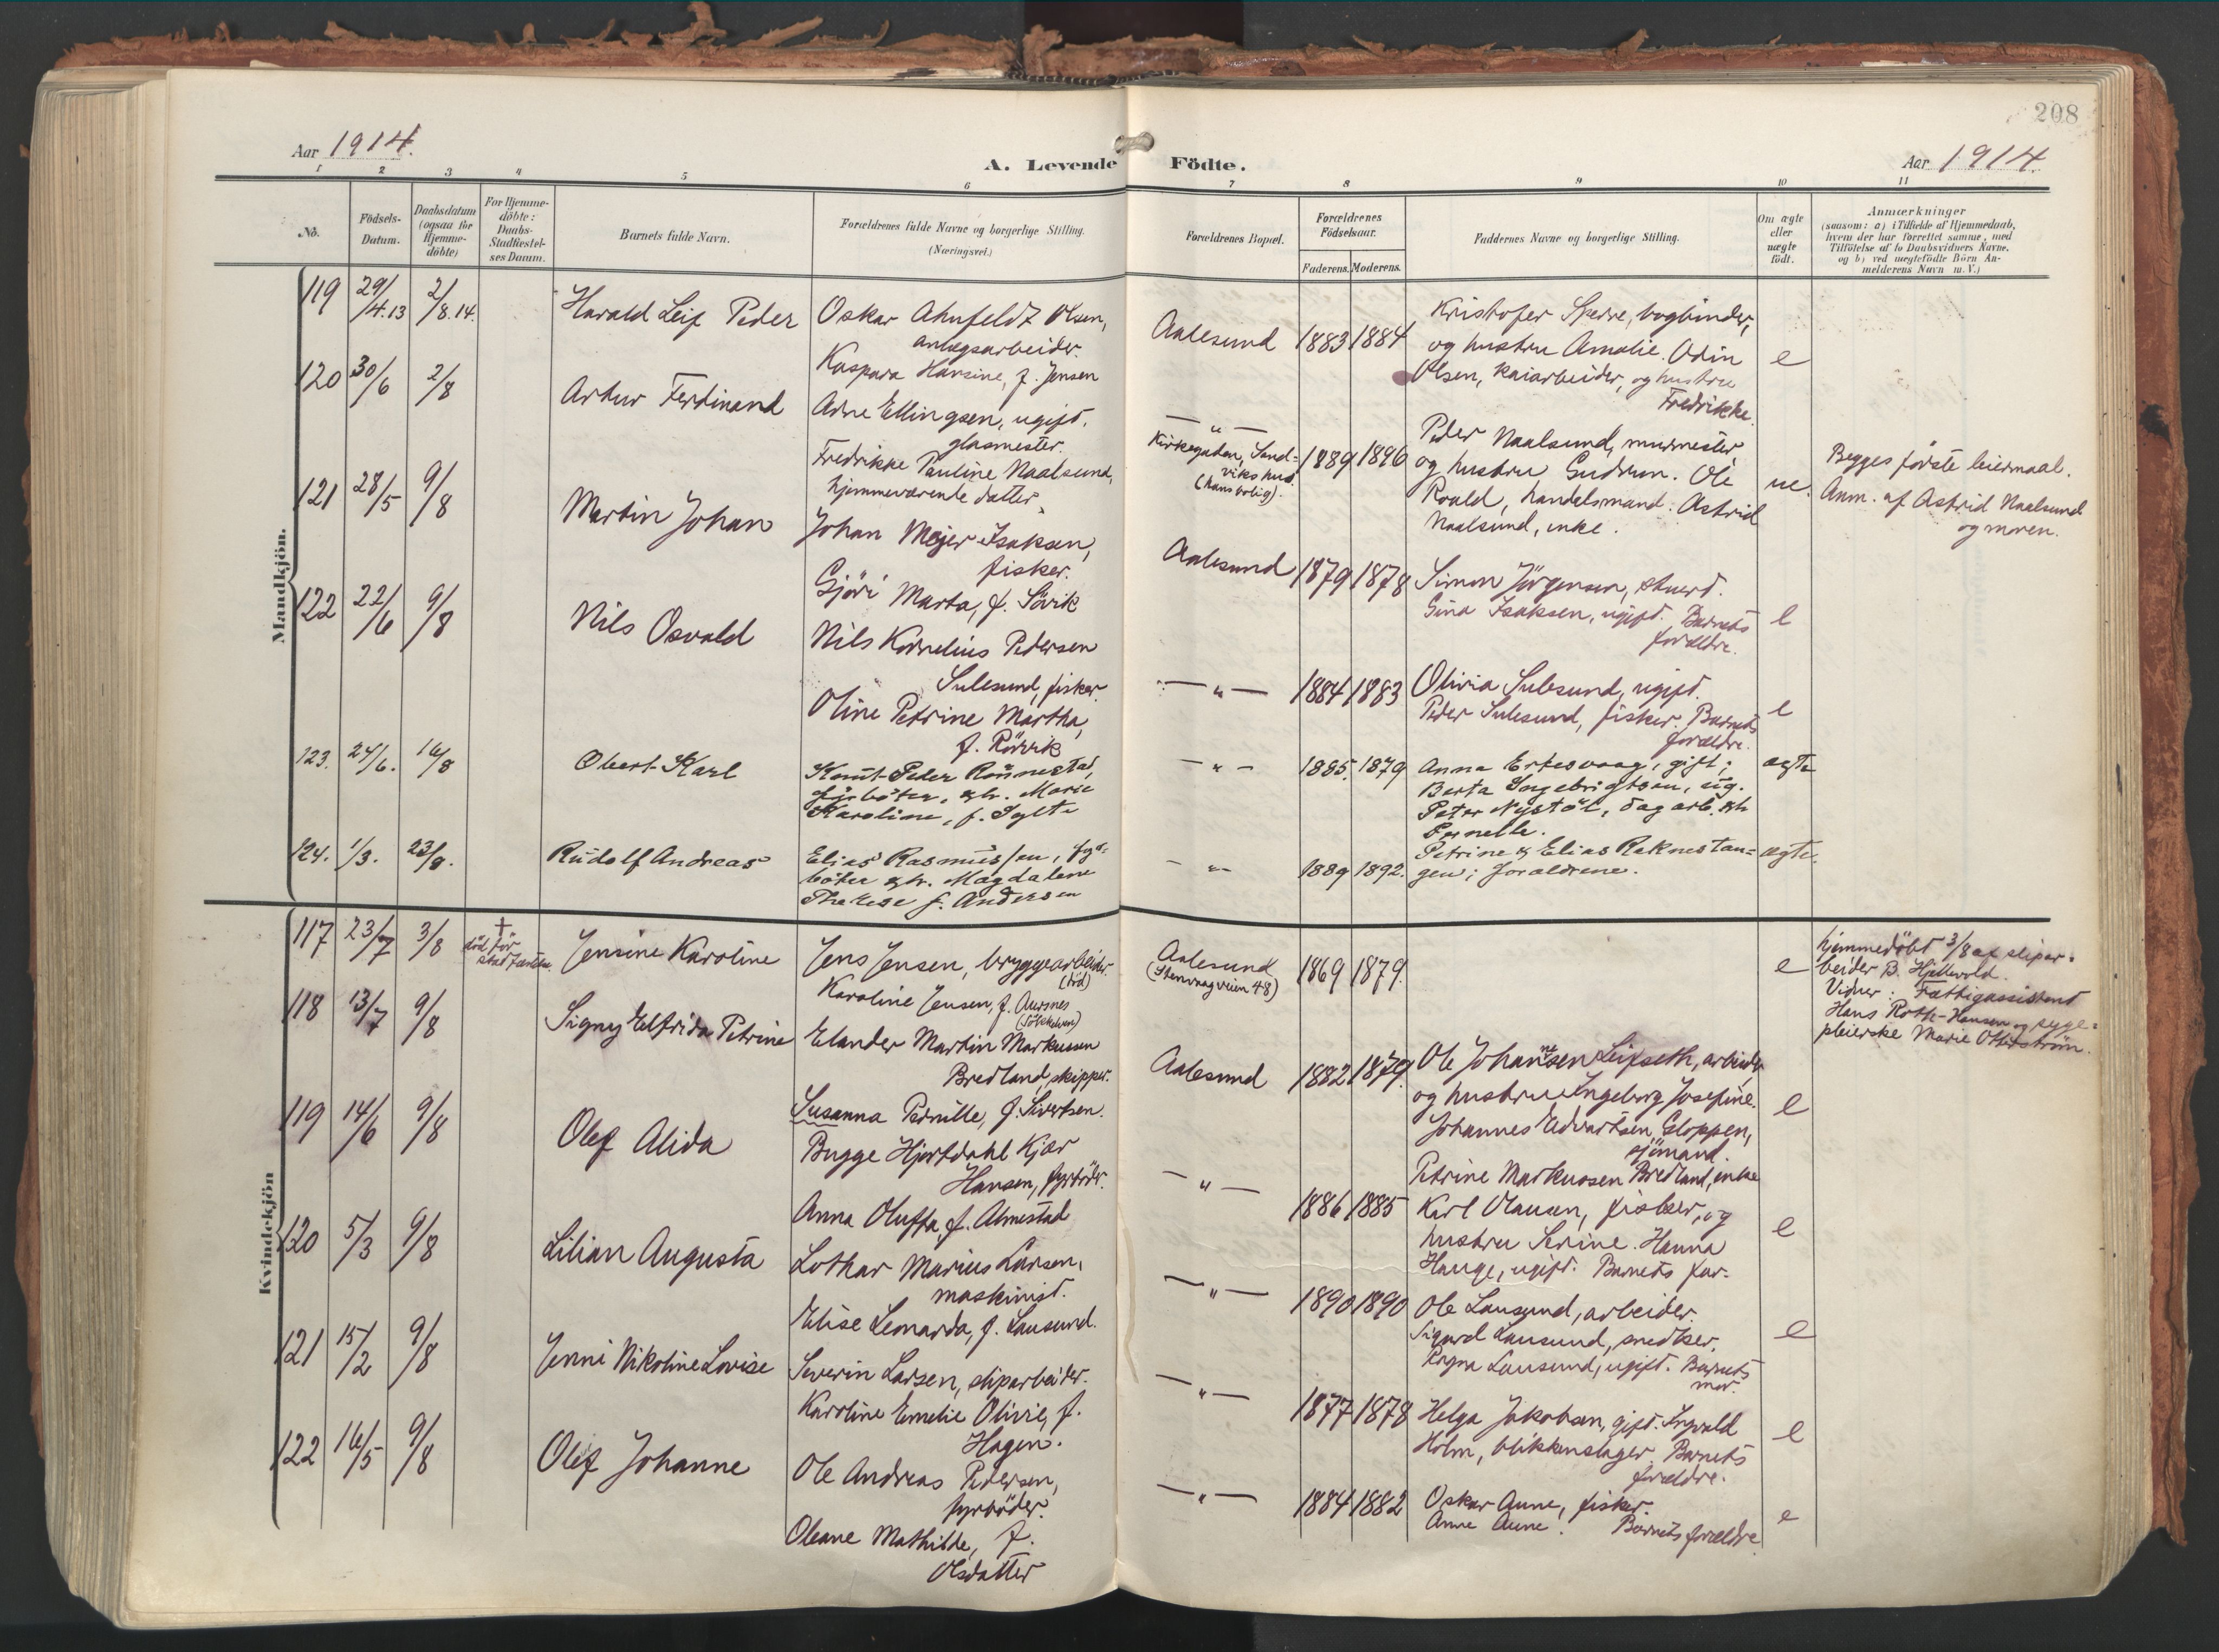 208
Aar 1914.
A. Levende Födte.
Aar 1914.
1 2 3 4 5 6 7 8 9 10 11
No.
Födsels-
Datum.
Daabsdatum
(ogsaa for
Hjemme-
döbte)
For Hjemme-
döbte:
Daabs-
Stadfæstel-
ses Datum.
Barnets fulde Navn.
Forældrenes fulde Navne og borgerlige Stilling.
(Næringsvei.)
Forældrenes Bopæl.
Forældrenes
Födselsaar.
Faderens. Moderens.
Faddernes Navne og borgerlige Stilling.
Om ægte
eller
uægte
födt.
Anmærkninger
(saasom: a) i Tilfælde af Hjemmedaab,
hvem der har forrettet samme, med
Tilföielse af to Daabsvidners Navne.
og b) ved uægtefödte Börn An-
melderens Navn m. V.)
Mandkjön.
119 29/4.13 2/8.14. Harald Leif Peder
Oskar Ahnfeldt Olsen,
anlægsarbeider.
Kaspara Hansine, f. Jensen
Aalesund 1883 1884
Kristofer Skerre, bogbinder,
og hustru Amalie. Odin
Olsen, kaiarbeider, og hustru
Fredrikke.
e
120 30/6 2/8 Artur Ferdinand
Arne Ellingsen, ugift,
glasmester.
Fredrikke Pauline Naalsund,
hjemmeværende datter.
— " —
Kirkegaden, Sand-
viks hus.
(hans bolig).
1889 1896
Peder Naalsund, murmester,
og hustru Gudrun. Ole
Roald, handelsmand. Astrid
Naalsund, enke.
ue.
Begges første leiermaal.
Anm. af Astrid Naalsund
og moren.
121 28/5 9/8 Martin Johan
Johan Mejer Isaksen,
fisker.
Gjöri Marta, f. Sövik
Aalesund 1879 1878
Simon Jörgensen, stuert.
Gina Isaksen, ugift. Barnets
forældre.
e
122 22/6 9/8 Nils Osvald
Nils Kornelius Pedersen
Sulesund, fisker.
Oline Petrine Martha,
f. Rörvik
— " — 1884 1883
Olivia Sulesund, ugift.
Peder Sulesund, fisker. Barnets
forældre.
e
123. 24/6. 16/8 Obert Karl
Knut Peder Rönnestad,
fyrböter, &h. Marie
Karoline, f. Sylte
— " — 1885. 1879
Anna Ertesvaag, gift;
Berta Ingebrigtsen, ug.
Peter Nystöl, dagarb. &h
Pernelle.
ægte
124. 1/3. 23/8. Rudolf Andreas
Elias Rasmussen, fyr-
böter &h. Magdalene
Therese f. Andersen
— " — 1889 1892.
Petrine & Elias Reknestan-
gen; forældrene.
ægte.
Kvindekjön
117 23/7 3/8 †
död för
stadfæstelse.
Jensine Karoline
Jens Jensen, bryggearbeider.
(död)
Karoline Jensen, f. Aursnes
Aalesund
(Stenvaagveien 48)
1869 1879.
e
hjemmedöbt 3/8 af sliper-
beider B. Hjellvold.
Vidner: Fattigassistent
Hans Roth-Hansen og syge-
pleierske Marie Otterström.
118 13/7 9/8 Signy Elfrida Petrine
Elander Martin Markussen
Bredland, skipper.
Susanna Pernille, f. Sivertsen.
Aalesund 1882 1879.
Ole Johannesen Leifseth, arbeider
og hustru Ingeborg Josefine.
Johannes Edvartsen Gloppen,
sjömand.
Petrine Markussen Bredland, enke
e
119 14/6 9/8 Olef Alida
Bugge Hjortdahl Kjær
Hansen, fyrböder.
Anna Oluffa, f. Almestad
— " — 1886 1885
Karl Olausen, fisker, og
hustru Serine. Hanna
Hauge, ugift. Barnets far.
e
120 5/3 9/8 Lilian Augusta
Lothar Marius Larsen,
maskinist.
Elise Leonarda, f. Lausund.
— " — 1890 1890
Ole Lausund, arbeider.
Sigurd Lausund, snedker.
Ragna Lausund, ugift. Barnets
mor.
e
121 15/2 9/8 Jenni Nikoline Lovise
Severin Larsen, sliparbeider.
Karoline Emelie Olivie, f.
Hagen.
— " — 1877 1878
Helga Jakobsen, gift. Ingvald
Holm, blikkenslager. Barnets
forældre.
e
122 16/5 9/8 Olef Johanne
Ole Andreas Pedersen,
fyrböder.
Oleane Mathilde, f.
Olsdatter
— " — 1884 1882
Oskar Aune, fisker
Anne Aune. Barnets forældre
e